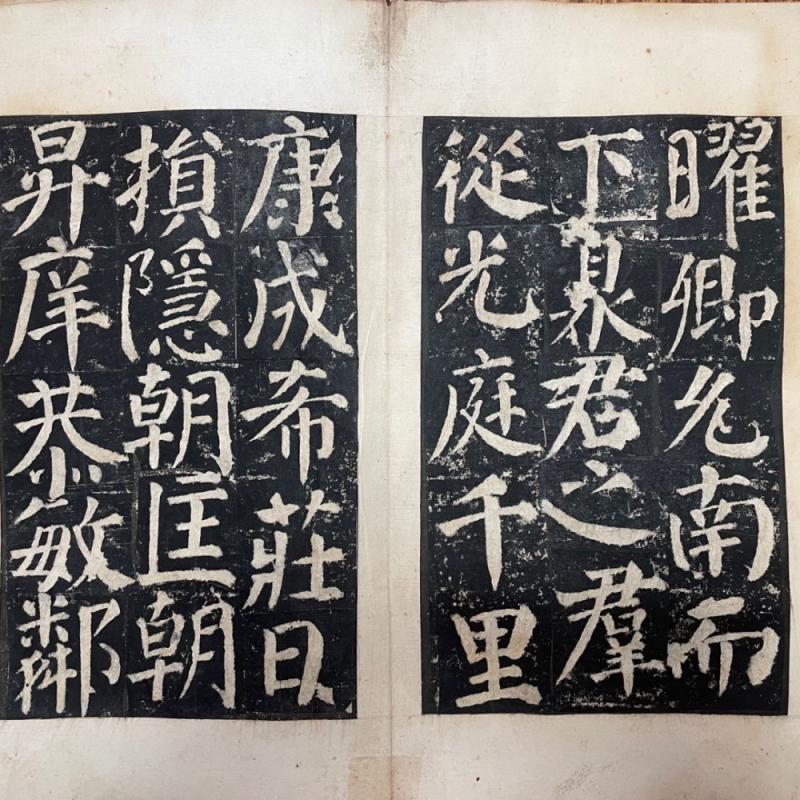 曜卿允南而
下臮君之羣
從光庭千里
康成希莊日
損隱朝匡朝
昇庠恭敏鄰